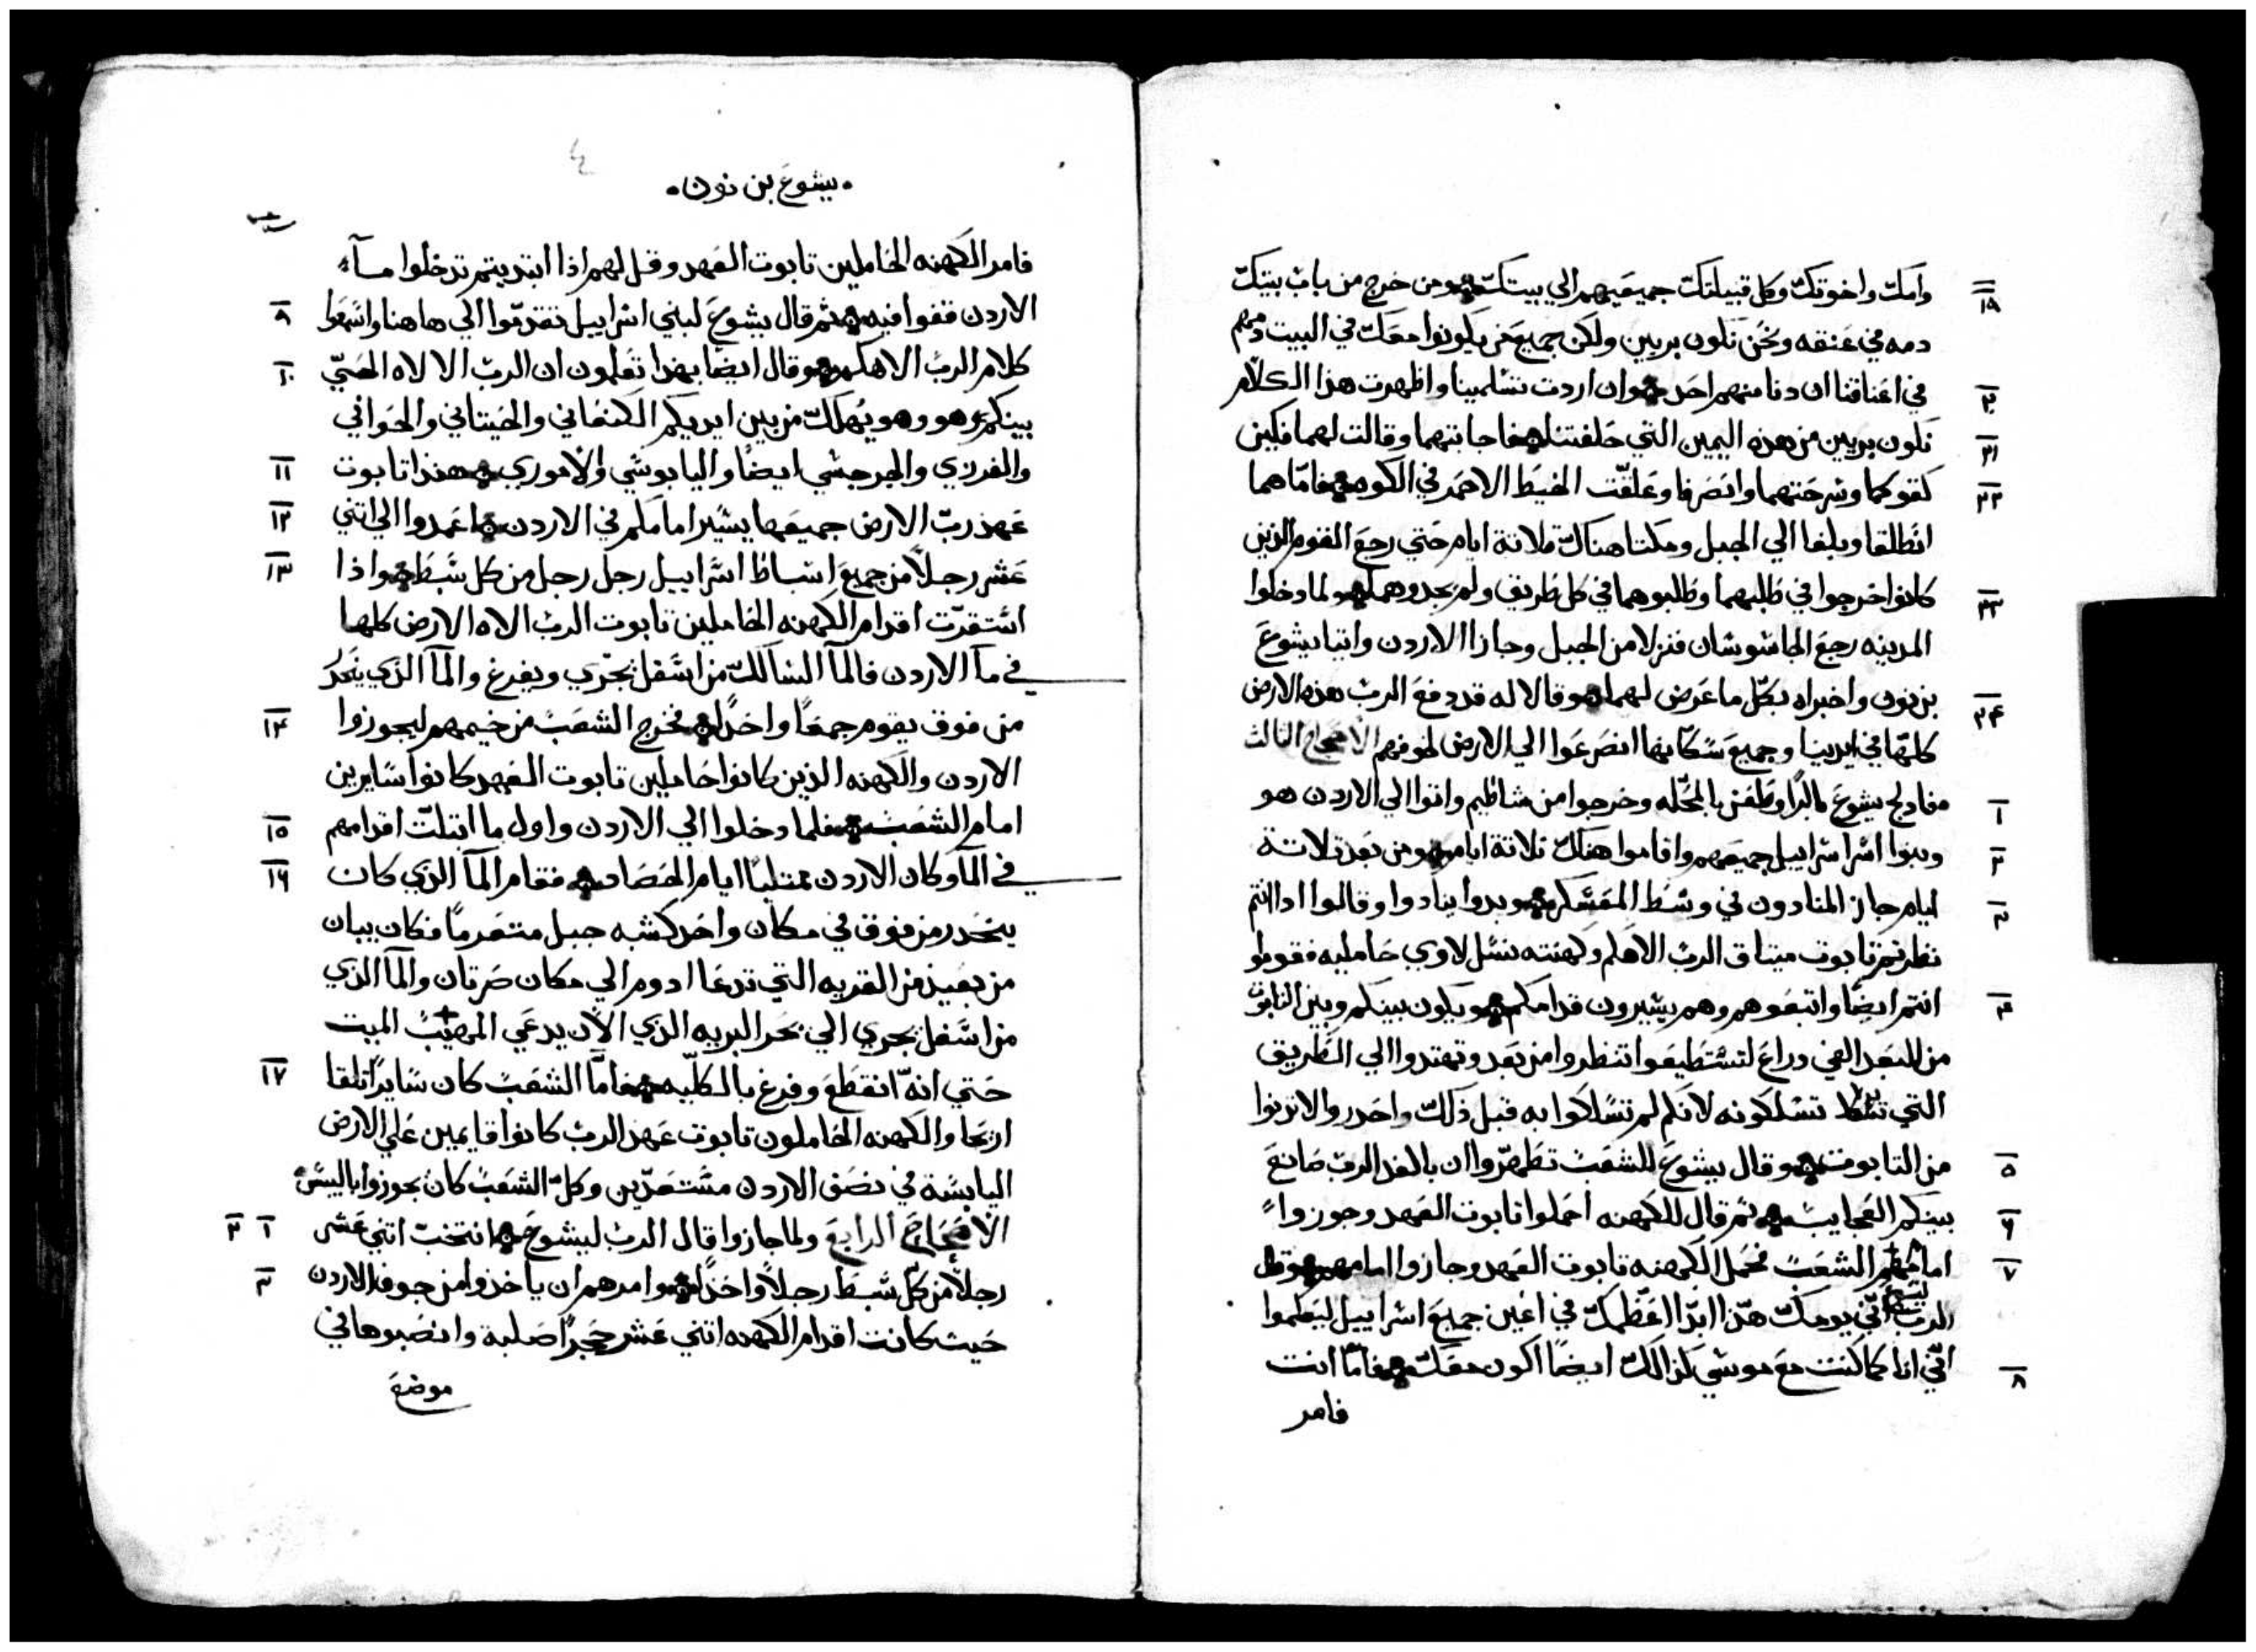 وامك واخوتك وكل قبيلتك جميعهم الي بيتك ومن خرج من باب بيتك
١٩
دمه في عنقه ونحن نكون بريين ولكن جميع من يكونوا معك في البيت دمهم
في اعناقنا ان دنا منهم احد وان اردت تسلمينا واظهرت هذا الكلام
٢٠
نكون بريين من هذه اليمين التي حلفتنا فاجابتهما وقالت لهما فليكن
٢١
كقولكما وسرحتهما وانصرفا وعلقت الخيط الاحمر في الكوه فاما هما
٢٢
انطلقا وبلغا الي الجبل ومكتا هناك تلاتة ايام حتي رجع القوم الذين
كانوا خرجوا في طلبهما وطلبوهما في كل طريق ولم يجدوهما ولما دخلوا
٢٣
المدينه رجع الجاسوسان فنزلا من الجبل وجازا الاردن واتيا يشوع
بن نون واخبراه بكل ما عرض لهما وقالا له قد دفع الرب هذه الارض
٢٤
كلها في ايدينا وجميع سكانها انصرعوا الي الارض لخوفهم الاصحاح التالت
فادلج يشوع باكرا وظعن بالمحله وخرجوا من شاطيم واتوا الي الاردن هو
١
وبنوا اسراييل جميعهم واقاموا هناك تلاتة ايام ومن بعد تلاتة
٢
ايام جاز المنادون في وسط المعسكر وبدوا ينادوا وقالوا اذا انتم
٣
نظرتم تابوت ميتاق الرب الاهكم وكهنته نسل لاوي حامليه فقوموا
انتم ايضا واتبعوهم وهم يسيرون قدامكم ويكون بينكم وبين التابوت
٤
من البعد الفي دراع لتستطيعوا تنظروا من بعد وتهتدوا الي الطريق
التي تسلكونه لانكم لم تسلكوا به قبل ذلك واحدروا لا تدنوا
من التابوت وقال يشوع للشعب تطهروا ان بالغد الرب صانع
٥
بينكم العجايب ثم قال للكهنه احملوا تابوت العهد وجوزوا
٦
امام الشعب فحمل الكهنه تابوت العهد وجازوا امامهم وقال
٧
الرب ليشوع اني يومك هذا ابدا اعظمك في اعين جميع اسراييل ليعلموا
اني انا كما كنت مع موسي كذالك ايضا اكون معك فاما انت
٨
فامر
يشوع بن نون
فامر الكهنه الحاملين تابوت العهد وقل لهم اذا ابتديتم تدخلوا مآء
الاردن قفوا فيه ثم قال يشوع لبني اسراييل تقدموا الي هاهنا واسمعوا
٩
كلام الرب الاهكم وقال ايضا بهذا تعلمون ان الرب الالاه الحي
١٠
بينكم هو وهو يهلك من بين ايديكم الكنعاني والحيتاني والحواني
والفرزي والجرجسي ايضا واليابوسي والاموري هذا تابوت
١١
عهد رب الارض جميعها يسير امامكم في الاردن اعمدوا الي اتني
١٢
عشر رجلا من جميع اسباط اسراييل رجل رجل من كل سبط واذا
١٣
استقرت اقدام الكهنه الحاملين تابوت الرب الاه الارض كلها
في مآ الاردن فالمآ السالك من اسفل يجري ويفرغ والمآ الذي ينحدر
من فوق يقوم جمعا واحدا فخرج الشعب من خيمهم ليجوزوا
١٤
الاردن والكهنه الذين كانوا حاملين تابوت العهد كانوا سايرين
امام الشعب فلما دخلوا الي الاردن واول ما ابتلت اقدامهم
١٥
في المآ وكان الاردن ممتليا ايام الحصاد فقام المآ الذي كان
١٦
ينحدر من فوق في مكان واحد كشبه جبل متعرما فكان يبان
من بعيد من القريه التي تدعا ادوم الي مكان صرتان والمآ الذي
من اسفل يجري الي بحر البريه الذي الآن يدعي الميت
حتي انه انقطع وفرغ بالكليه فاما الشعب كان سايرا تلقا
١٧
اريحا والكهنه الحاملون تابوت عهد الرب كانوا قايمين علي الارض
اليابسة في نصف الاردن مستعدين وكل الشعب كان يجوزوا باليبس
الاصحاح الرابع ولما جازوا قال الرب ليشوع انتخب اتني عشر
١ ٢
رجلا من كل سبط رجلا واحدا وامرهم ان ياخذوا من جوف الاردن
٣
حيت كانت اقدام الكهنه اتني عشر حجرا صلبة وانصبوها في
موضع